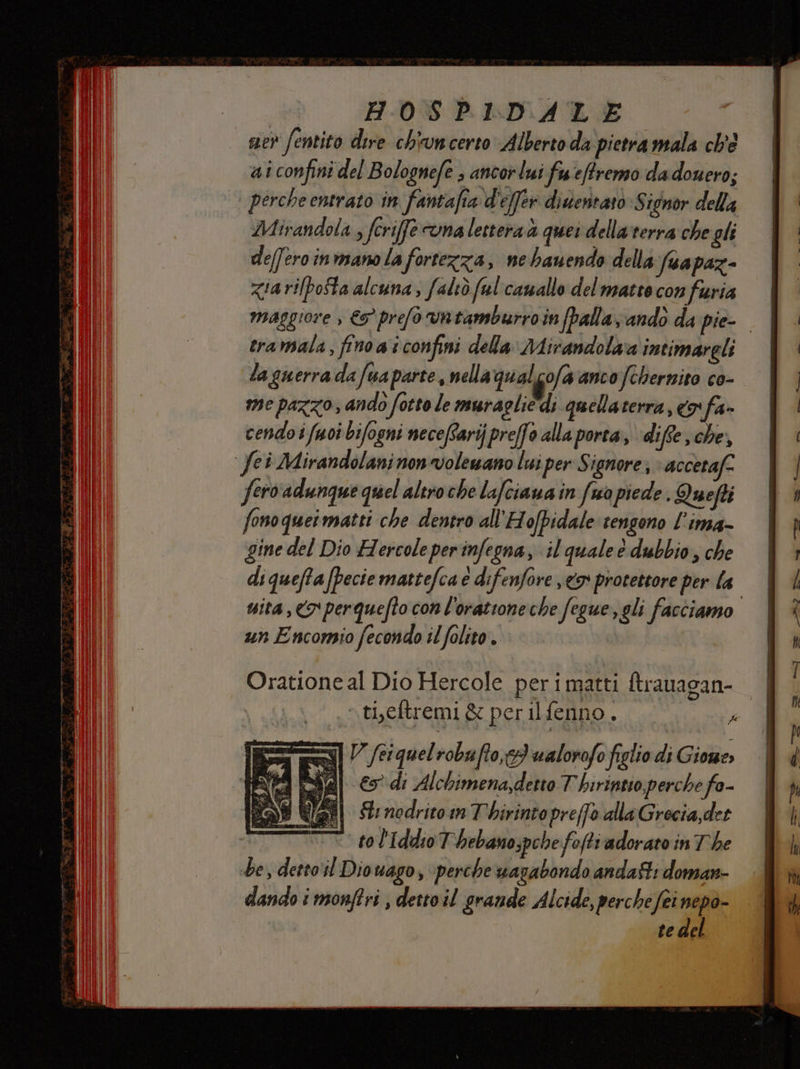 HOSPIDALE
uer ſentito dire ch'un certo Alberto da pietra mala ch'è
ai confini del Bologneſe, ancor lui fu eſtremo da douero;
perche entrato in fantaſia d'eſſer diuentato Signor della
Mirandola, ſcriſſe vna lettera à quei della terra che gli
deſſero in mano la fortezza, ne hauendo della ſua paz-
zia riſpoſta alcuna, ſaltò ſul cauallo del matto con furia
maggiore, & preſo vn tamburro in ſpalla, andò da pie-
tra mala, fino a i confini della Mirandola a intimargli
la guerra da ſua parte, nella qual coſa anco ſchernito co-
me pazzo, andò ſotto le muraglie di quella terra, & fa-
cendo i ſuoi biſogni neceſſarij preſſo alla porta, diſſe, che,
ſei Mirandolani non voleuano lui per Signore, accetaſ-
ſero adunque quel altro che laſciaua in ſuo piede. Queſti
ſono quei matti che dentro all'Hoſpidale tengono l'ima-
gine del Dio Hercole per inſegna, il quale è dubbio, che
di queſta ſpecie matteſca è difenſore, & protettore per la
uita, & per queſto con l'oratione che ſegue, gli facciamo
un Encomio ſecondo il ſolito.
Oratione al Dio Hercole per i matti ſtrauagan-
ti, eſtremi & per il ſenno.
V ſei quel robuſto, & ualoroſo figlio di Gioue,
& di Alchimena, detto Thirintio, perche fo-
ſti nodrito in Thirinto preſſo alla Grecia, det
to l'Iddio Thebano, pche foſti adorato in The
be, detto il Diouago, perche uagabondo andaſti doman-
dando i monſtri, detto il grande Alcide, perche ſei nepo-
te del